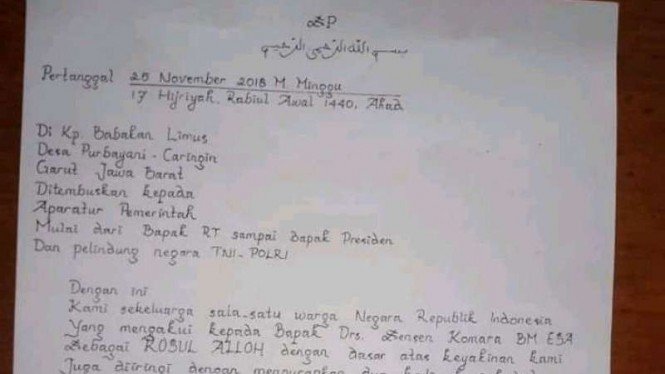 SP
بسم الله الرحمن الرحيم
Pertanggal 25 November 2018 M Minggu
17 Hijriyah, Rabiul Awal 1440, Ahad
Di Kp. Babakan Limus
Desa Purbayani - Caringin
Garut Jawa Barat
Ditembuskan kepada
Aparatur Pemerintah
Mulai dari Bapak RT sampai Bapak Presiden
Dan pelindung negara TNI-POLRI
Dengan ini
Kami sekeluarga sala-satu warga Negara Republik Indonesia
Yang mengakui kepada Bapak Drs. Sensen Komara BM ESA
Sebagai ROSUL ALLOH dengan dasar atas keyakinan kami
Juga diiringi dengan mengucapkan dua